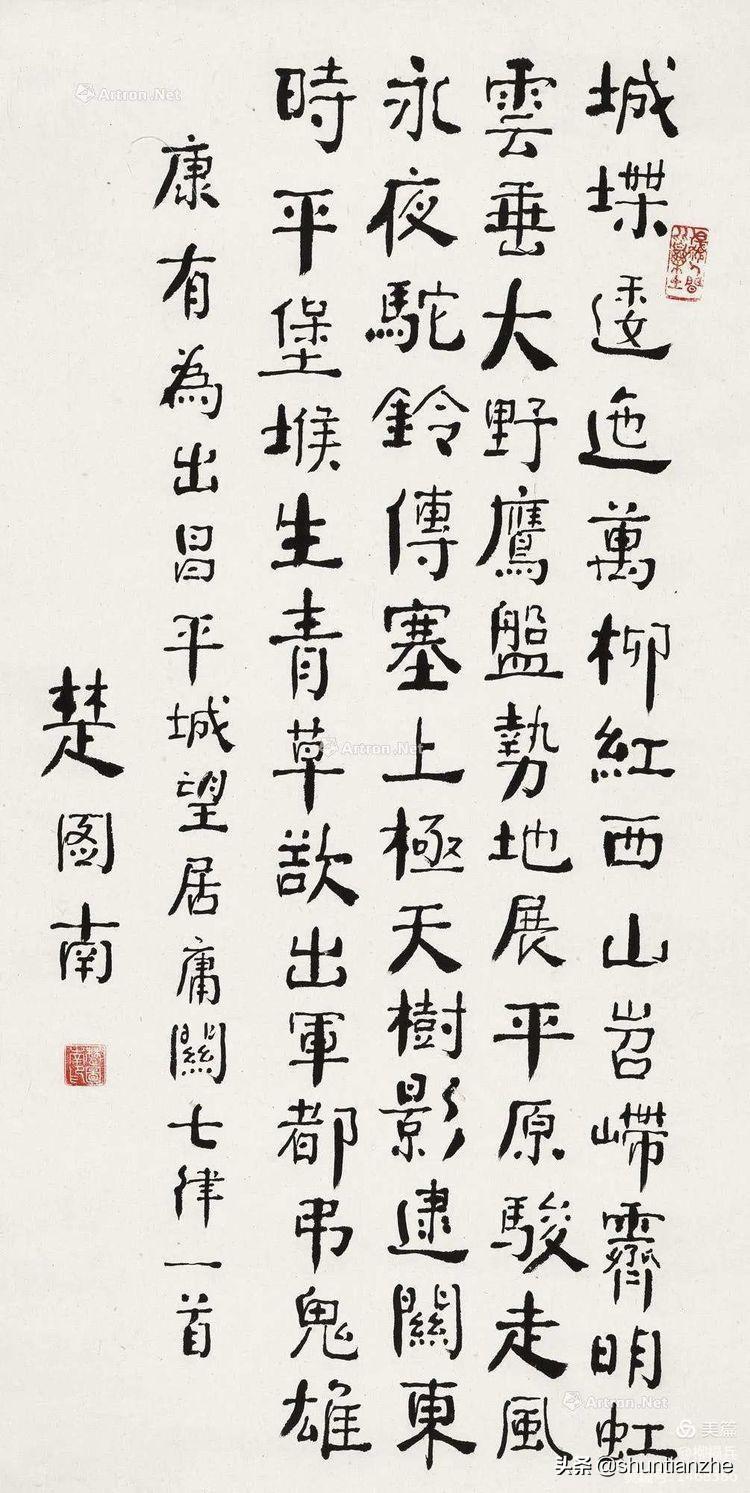 城堞逶迤萬柳紅西山岧嵽霽明虹
雲垂大野鷹盤勢地展平原駿走風
永夜駝鈴傳塞上極天樹影逮關東
時平堡堠生青草欲出軍都弔鬼雄
康有為出昌平城望居庸關七律一首
楚图南
Artron.Net
Artron.Net
Artron.Net
美篇
头条 @shuntianzhe